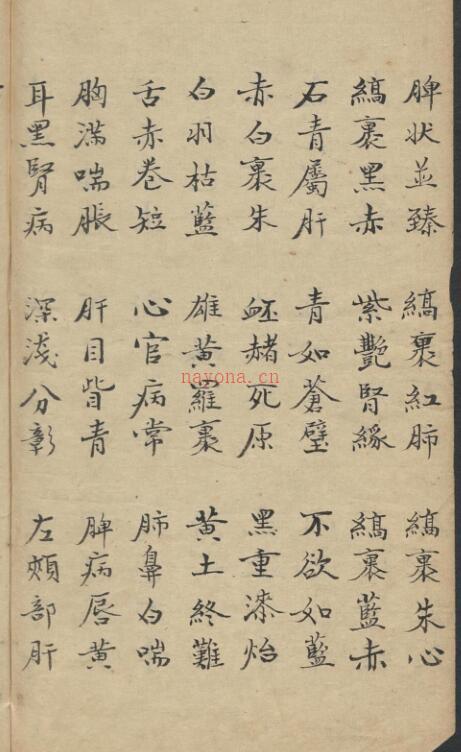 脾状並臻 縞裹紅肺 縞裹朱心
縞裹黑赤 紫艷腎緣 縞裹藍赤
石青屬肝 青如蒼璧 不欲如藍
赤白裹朱 衃赭死原 黑重漆炲
白羽枯藍 雄黃羅裹 黃土終難
舌赤卷短 心官病常 肺鼻白喘
胸滿喘脹 肝目眥青 脾病唇黃
耳黑腎病 深淺分彰 左頰部肝
nayona.cn